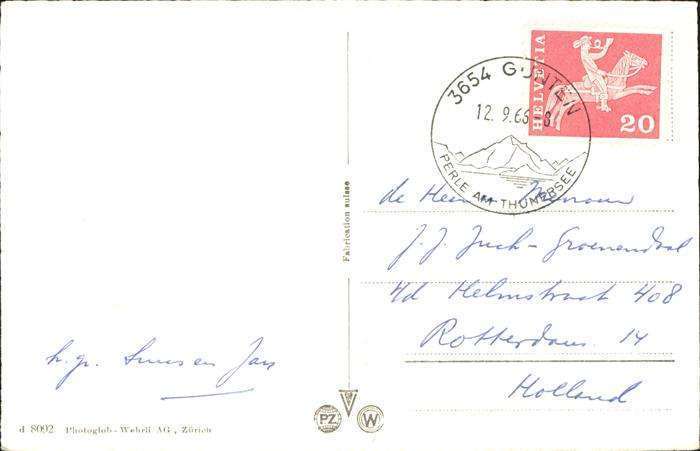 HELVETIA
20
3654 GUNTEN
12. 9.66-8
PERLE AM THUNERSEE
Fabrication suisse
de Heer Mevrouw
J. J. Juch-Groenendaal
v/d Helmstraat 408
Rotterdam. 14
Holland
h. gr. en Jan
PZ
W
d 8092 Photoglob-Wehrli AG., Zürich